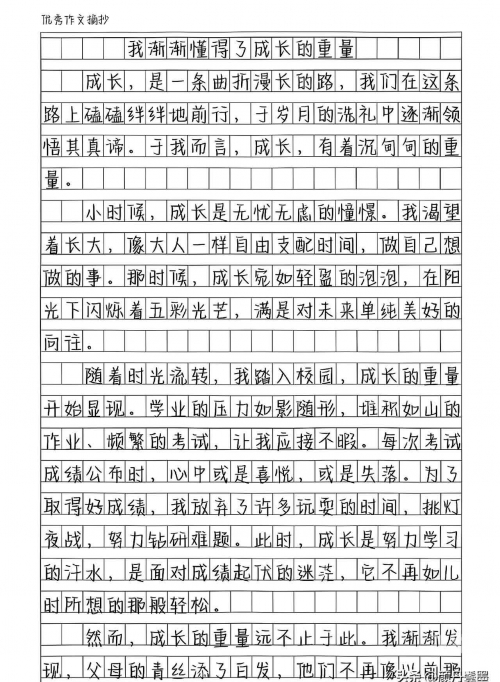 优秀作文摘抄
我渐渐懂得了成长的重量
成长，是一条曲折漫长的路，我们在这条
路上磕磕绊绊地前行，于岁月的洗礼中逐渐领
悟其真谛。于我而言，成长，有着沉甸甸的重
量。
小时候，成长是无忧无虑的憧憬。我渴望
着长大，像大人一样自由支配时间，做自己想
做的事。那时候，成长宛如轻盈的泡泡，在阳
光下闪烁着五彩光芒，满是对未来单纯美好的
向往。
随着时光流转，我踏入校园，成长的重量
开始显现。学业的压力如影随形，堆称如山的
作业、频繁的考试，让我应接不暇。每次考试
成绩公布时，心中或是喜悦，或是失落。为了
取得好成绩，我放弃了许多玩耍的时间，挑灯
夜战，努力钻研难题。此时，成长是努力学习
的汗水，是面对成绩起伏的迷茫，它不再如儿
时所想的那般轻松。
然而，成长的重量远不止于此。我渐渐发
现，父母的青丝添了白发，他们不再像以前那